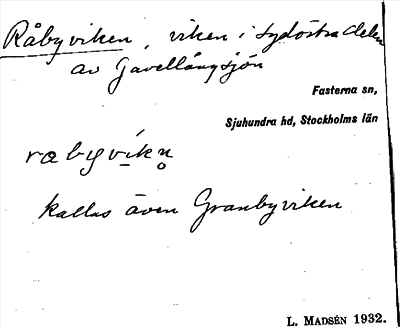 Råbyviken, viken i sydöstra delen
av Gavellångsjön
Fasterna sn,
Sjuhundra hd, Stockholms län
kallas även Granbyviken
L. MADSÉN 1932.